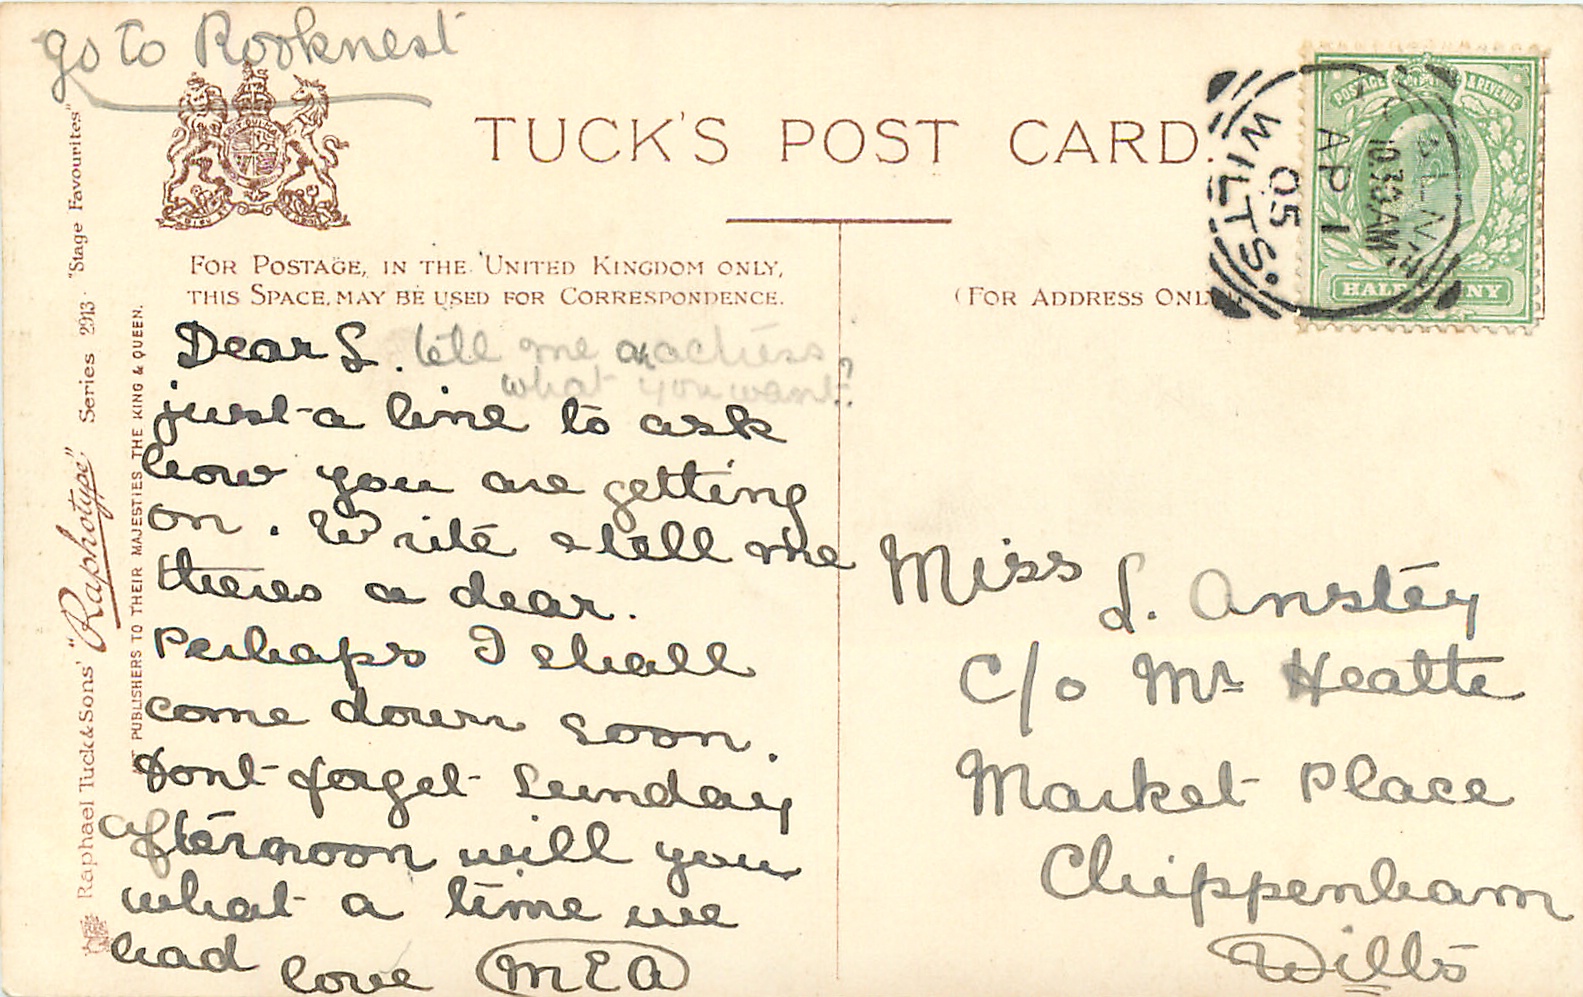 go to Rooknest
TUCK'S POST CARD.
FOR POSTAGE, IN THE UNITED KINGDOM ONLY,
THIS SPACE, MAY BE USED FOR CORRESPONDENCE.
(FOR ADDRESS ONLY
POSTAGE & REVENUE
HALFPENNY
10.30AM
AP 1
05
WILTS
Raphael Tuck & Sons' "Raphotype" Series 2913 "Stage Favourites"
ART PUBLISHERS TO THEIR MAJESTIES THE KING & QUEEN.
Dear L. tell me an actress
what you want?
just a line to ask
how you are getting
on. Write & tell me
theres a dear.
Perhaps I shall
come down soon.
Dont forget Sunday
afternoon will you
what a time we
had love MEA
Miss L. Anstey
C/o Mr Heatte
Market Place
Chippenham
Wilts